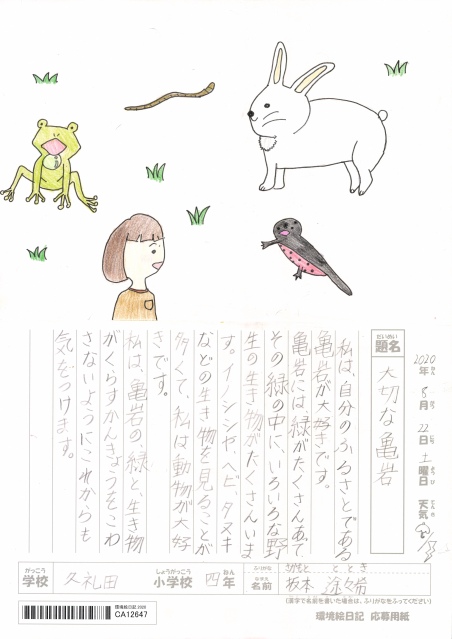 2020年 8月 22日 土曜日 天気
題名 大切な亀岩
私は、自分のふるさとである
亀岩が大好きです。
亀岩には、緑がたくさんあって
その緑の中に、いろいろな野
生の生き物がたくさんいま
す。イノシシや、ヘビ、タヌキ
などの生き物を見ることが
多くて、私は動物が大好
きです。
私は、亀岩の、緑と、生き物
がくらすかんきょうをこわ
さないようにこれからも
気をつけます。
がっこう しょうがっこう ねん
学校 久礼田 小学校 四年
ふりがな さかもと ととき
なまえ
名前 坂本
(漢字で名前を書いた場合は、ふりがなをふってください)
環境絵日記 2020
CA12647
環境絵日記 応募用紙